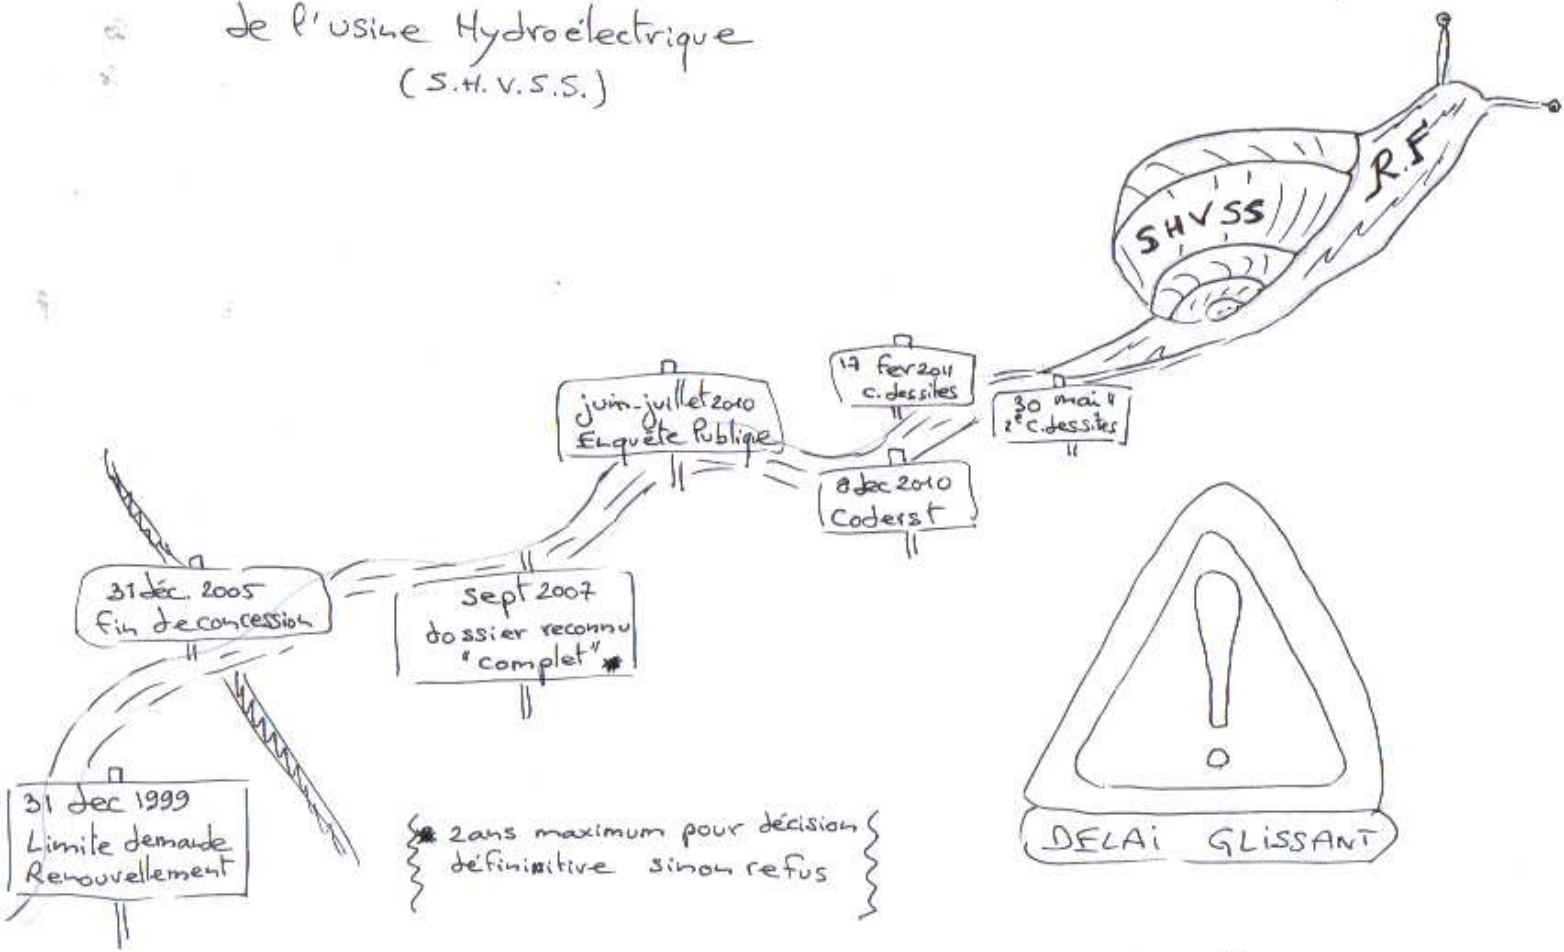 de l'usine Hydroélectrique
(S.H.V.S.S.)
R.F
SHVSS
17 fev 2011
c. des sites
30 mai 11
2e C. des sites
juin-juillet 2010
Enquête Publique
8 dec 2010
Coderst
31 déc. 2005
fin de concession
sept 2007
dossier reconnu
"complet" *
31 dec 1999
Limite demande
Renouvellement
* 2ans maximum pour décision
définitive sinon refus
DELAi GLiSSANT